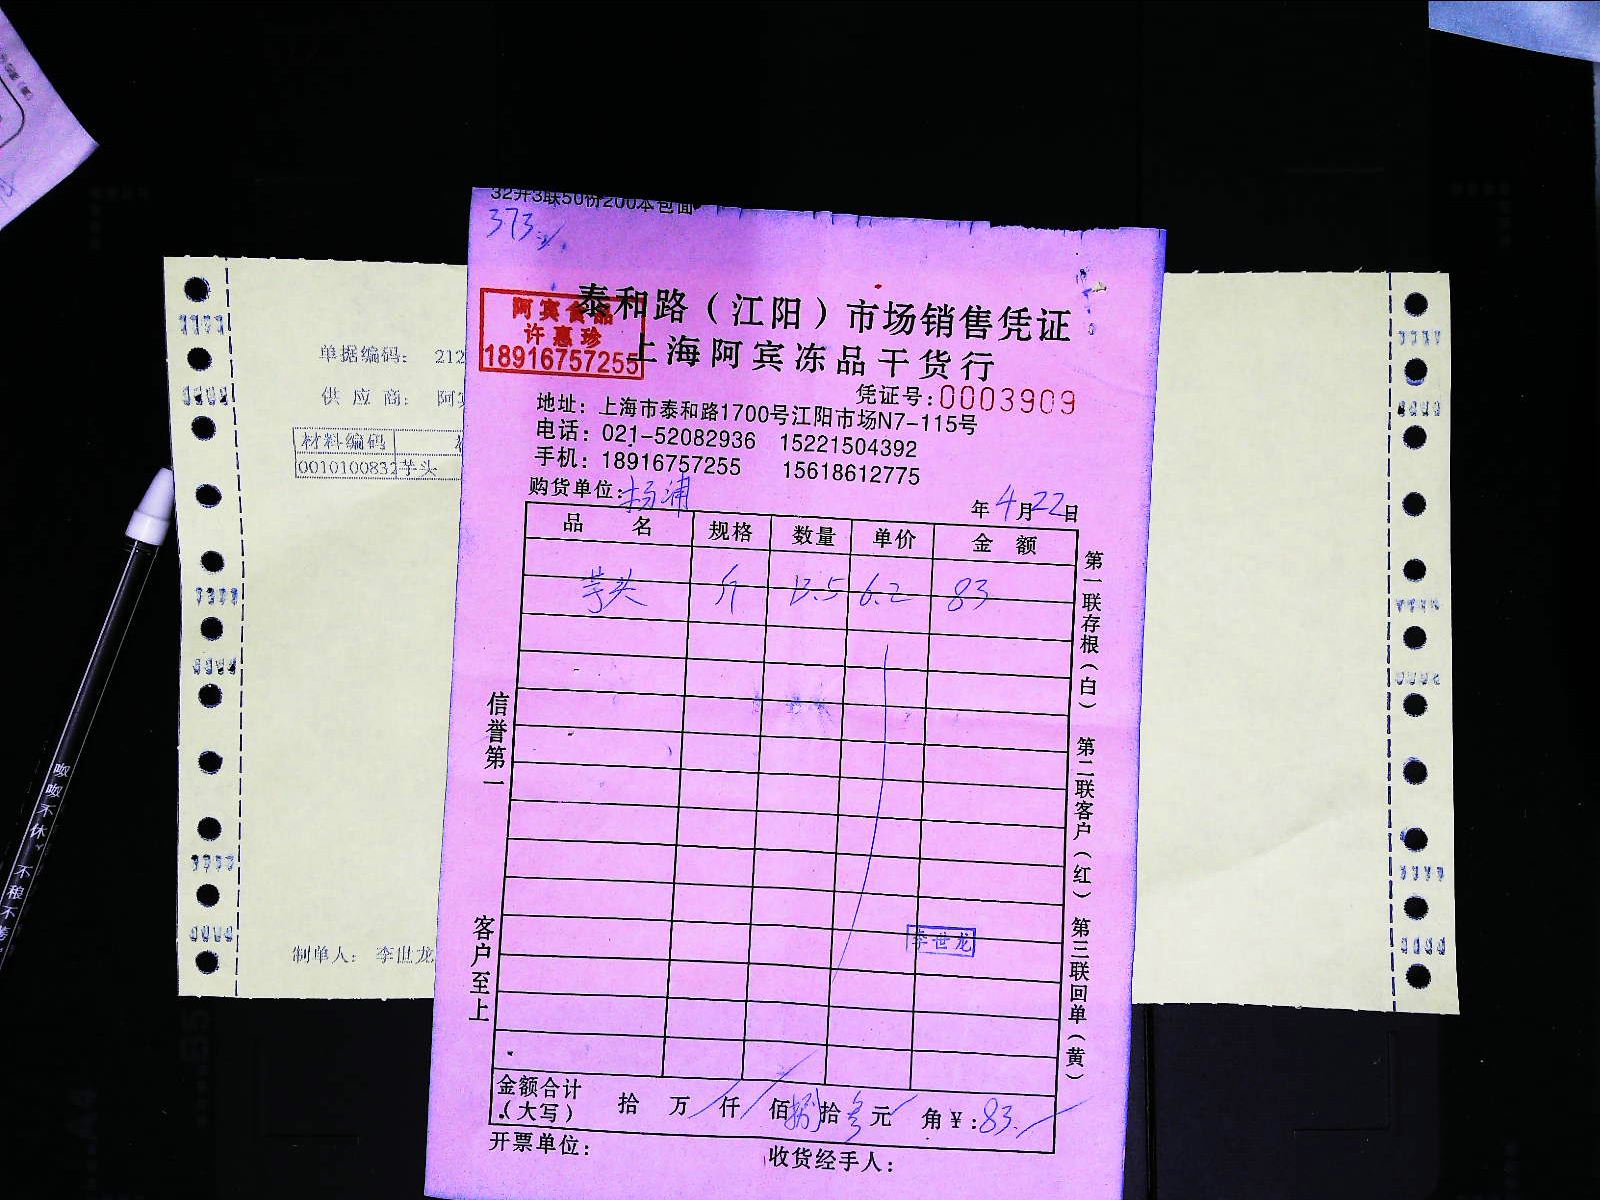 32开3联50份200本包面
373
泰和路（江阳）市场销售凭证
阿宾食品
许惠珍
18916757255
上海阿宾冻品干货行
凭证号:0003909
地址：上海市泰和路1700号江阳市场N7-115号
电话：021-52082936 15221504392
手机：18916757255 15618612775
购货单位:杨浦
年4月22日
品名 规格 数量 单价 金额
芋头 斤 13.5 6.2 83
李世龙
金额合计（大写） 拾 万 仟 佰捌拾叁元 角￥:83.
开票单位：
收货经手人：
信誉第一
客户至上
第一联存根（白） 第二联客户（红） 第三联回单（黄）
单据编码： 212
供应商： 阿
材料编码
0010100832 芋头
制单人： 李世龙
不休